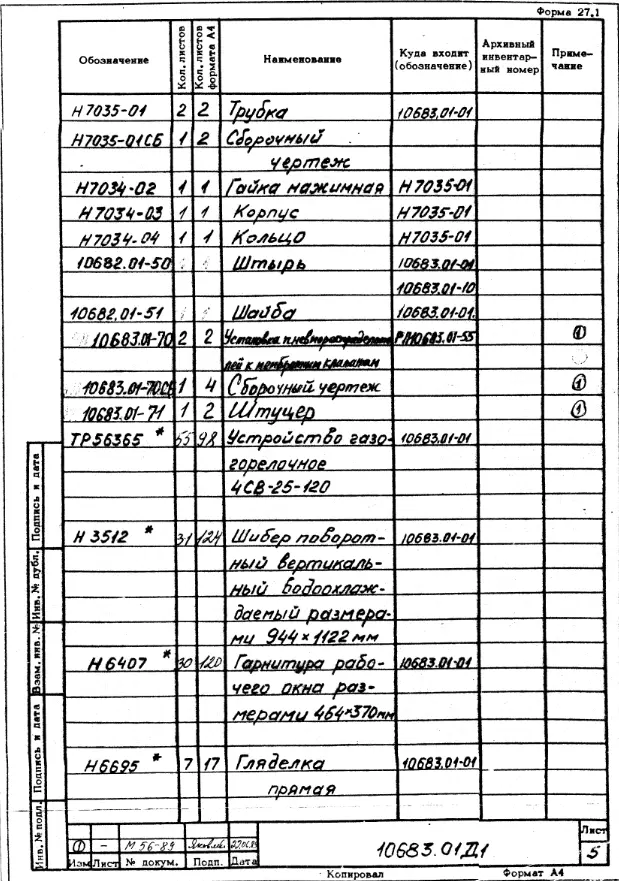 Форма 27.1
Обозначение Кол. листов Кол. листов формата А4 Наименование Куда входит (обозначение) Архивный инвентарный номер Примечание
Н7035-01 2 2 Трубка 10683.01-01
Н7035-01СБ 1 2 Сборочный
чертеж
Н7034-02 1 1 Гайка нажимная Н7035-01
Н7034-03 1 1 Корпус Н7035-01
Н7034-04 1 1 Кольцо Н7035-01
10682.01-50 Штырь 10683.01-01
10683.01-10
10682.01-51 Шайба 10683.01-01
10683.01-70 2 2 Установка пневмораспредели- 10683.01-55 ①
лей к мембранным клапанам
10683.01-70СБ 1 4 Сборочный чертеж ①
10683.01-71 1 2 Штуцер ①
ТР56365 * 55 98 Устройство газо- 10683.01-01
горелочное
4СВ-25-120
Н 3512 * 31 124 Шибер поворот- 10683.01-01
ный вертикаль-
ный водоохлаж-
даемый размера-
ми 944×1122 мм
Н6407 * 30 120 Гарнитура рабо- 10683.01-01
чего окна раз-
мерами 464×370мм
Н6695 * 7 17 Гляделка 10683.01-01
прямая
Инв. № подл. Подпись и дата Взам. инв. № Инв. № дубл. Подпись и дата
① - М 56-89
Изм Лист № докум. Подп. Дата
10683.01Д1
Лист
5
Копировал Формат А4